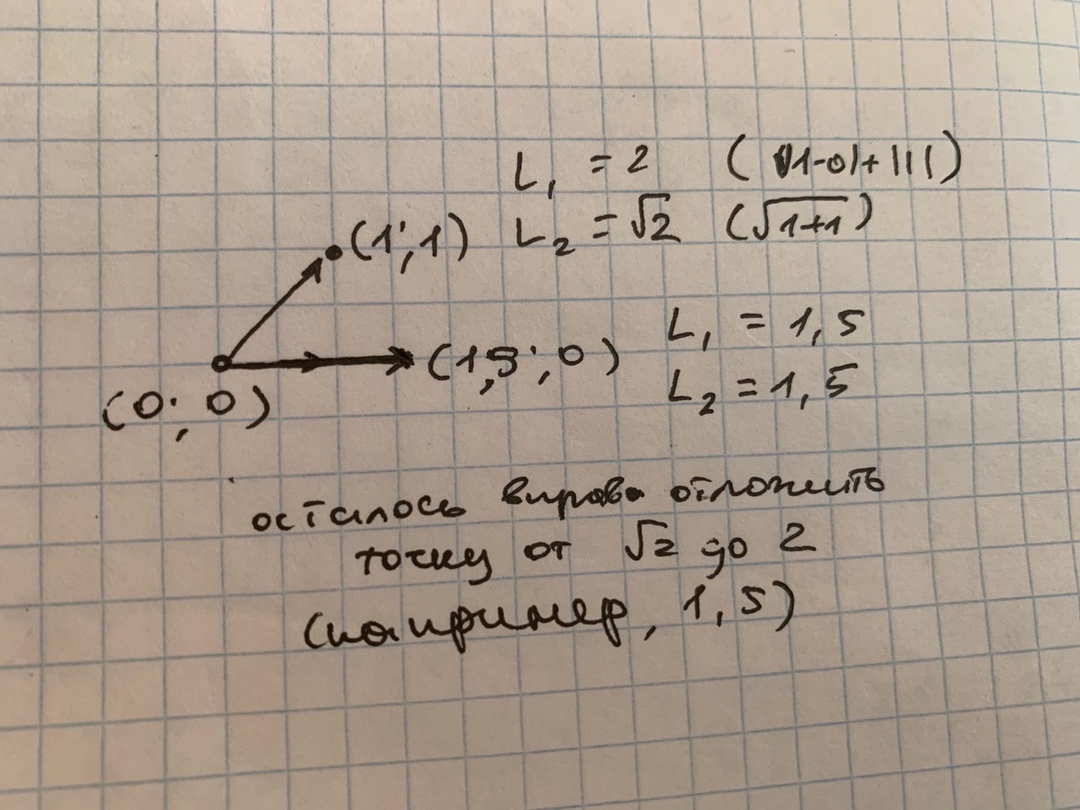 L₁ = 2 (|1-0|+|1|)
(1;1) L₂ = √2 (√1+1)
L₁ = 1,5
(1,5;0)
L₂ = 1,5
(0;0)
осталось вправо отложить
точку от √2 до 2
(например, 1,5)